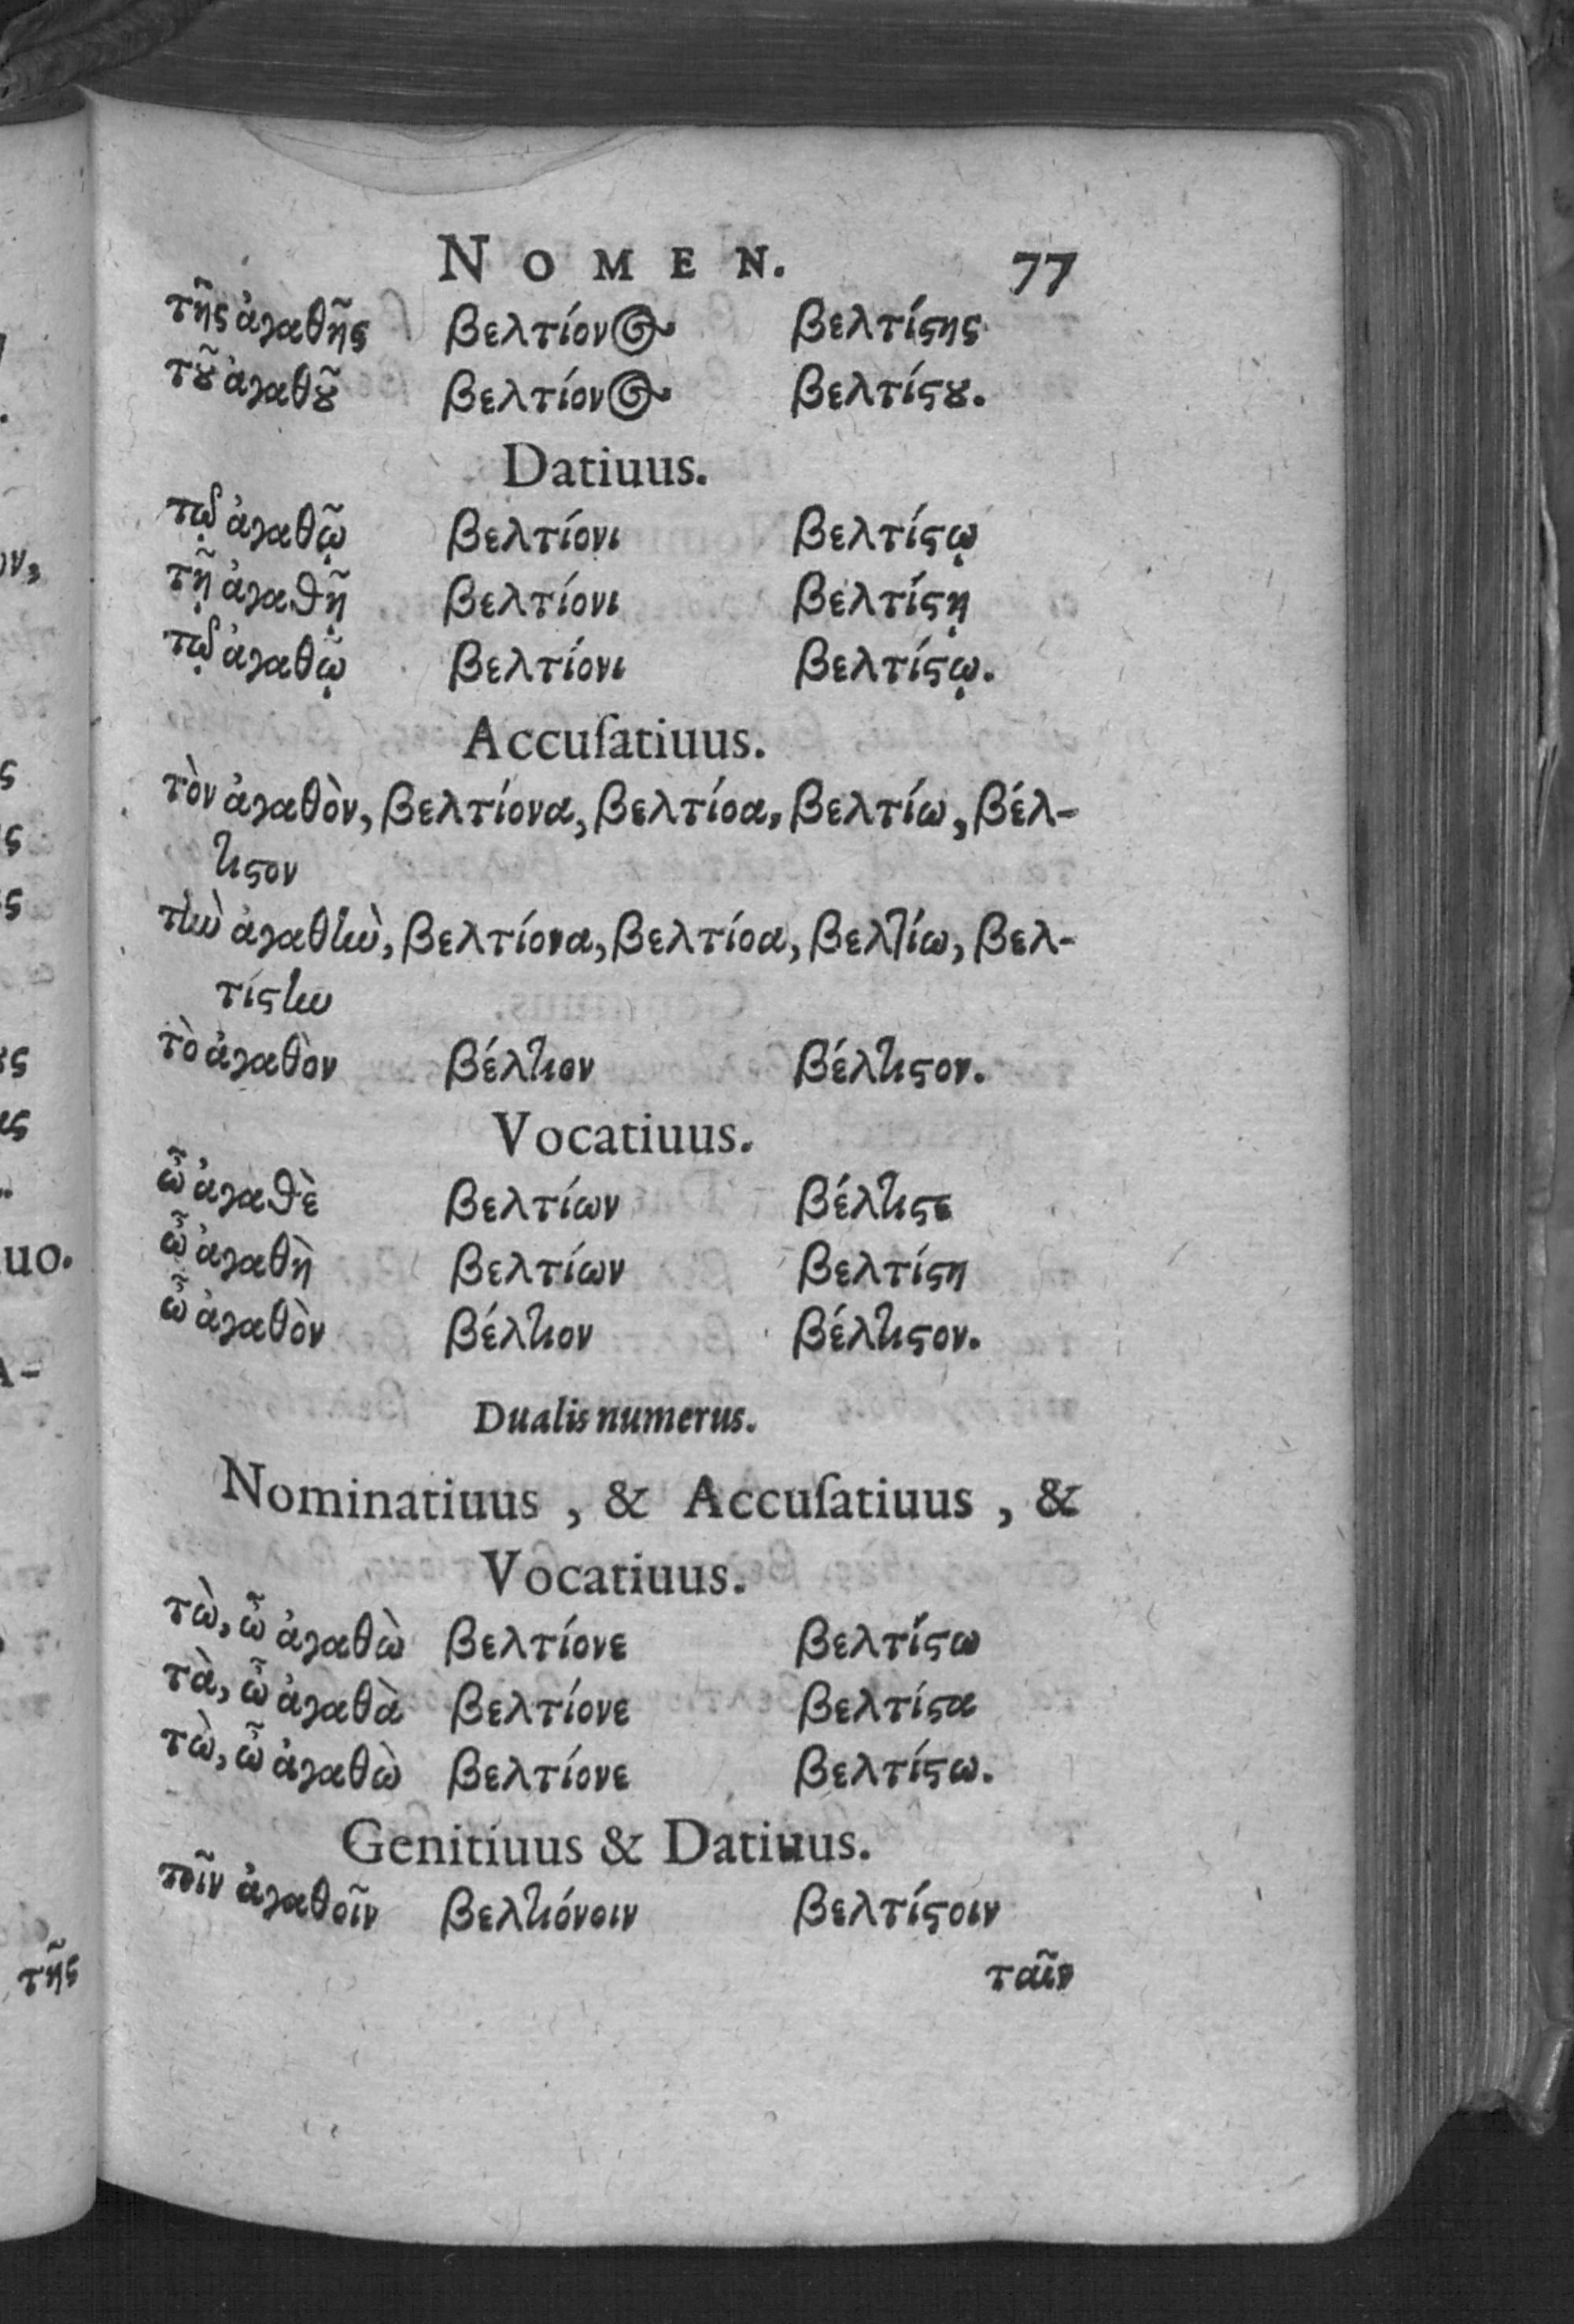 NOMEN. 77
τῆς ἀγαθῆς βελτίονος βελτίϛης
τȣ͂ ἀγαθȣ͂ βελτίονος βελτίϛȣ.
Datiuus.
τῷ ἀγαθῷ βελτίονι βελτίϛῳ
τῇ ἀγαθῇ βελτίονι βελτίϛῃ
τῷ ἀγαθῷ βελτίονι βελτίϛῳ.
Accuſatiuus.
τὸν ἀγαθὸν, βελτίονα, βελτίοα, βελτίω, βέλ-
τιϛον
τὴν ἀγαθὴν, βελτίονα, βελτίοα, βελτίω, βελ-
τίϛην
τὸ ἀγαθὸν βέλτιον βέλτιϛον.
Vocatiuus.
ὦ ἀγαθὲ βελτίων βέλτιϛε
ὦ ἀγαθὴ βελτίων βελτίϛη
ὦ ἀγαθὸν βέλτιον βέλτιϛον.
Dualis numerus.
Nominatiuus, & Accuſatiuus, &
Vocatiuus.
τὼ, ὦ ἀγαθὼ βελτίονε βελτίϛω
τὰ, ὦ ἀγαθὰ βελτίονε βελτίϛα
τὼ, ὦ ἀγαθὼ βελτίονε βελτίϛω.
Genitiuus & Datiuus.
τοῖν ἀγαθοῖν βελτιόνοιν βελτίϛοιν
ταῖν
uo.
τῆς